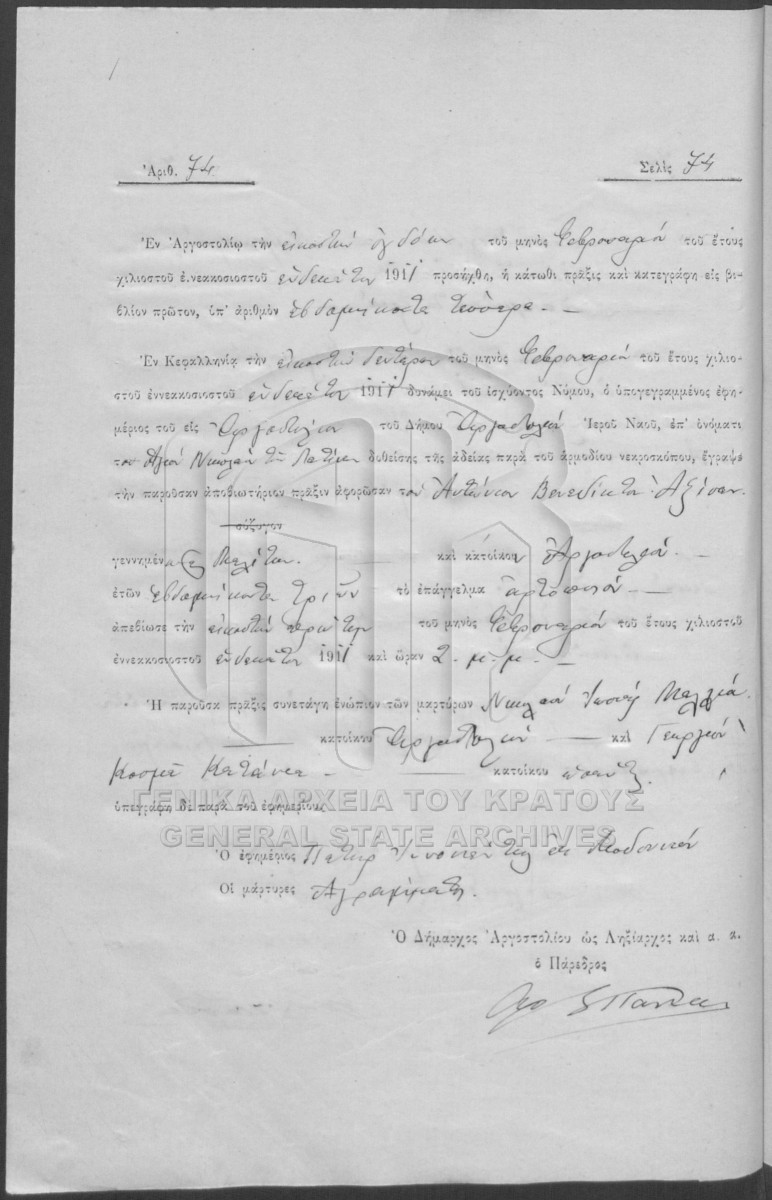 Ἀριθ. 74 Σελὶς 74
Ἐν Ἀργοστολίῳ τὴν εἰκοστὴν ὀγδόην τοῦ μηνὸς Φεβρουαρίου τοῦ ἔτους
χιλιοστοῦ ἐνεακοσιοστοῦ ἑνδεκάτου 1911 προσήχθη, ἡ κάτωθι πρᾶξις καὶ κατεγράφη εἰς βι-
βλίον πρῶτον, ὑπ' ἀριθμὸν ἑβδομήκοντα τέσσερα. —
Ἐν Κεφαλληνίᾳ τὴν εἰκοστὴν δευτέραν τοῦ μηνὸς Φεβρουαρίου τοῦ ἔτους χιλιο-
στοῦ ἐννεακοσιοστοῦ ἑνδεκάτου 1911 δυνάμει τοῦ ἰσχύοντος Νόμου, ὁ ὑπογεγραμμένος ἐφη-
μέριος τοῦ εἰς Ἀργοστόλιον τοῦ Δήμου Ἀργοστολίου Ἱεροῦ Ναοῦ, ἐπ' ὀνόματι
του Ἁγίου Νικολάου τῶν Λατίνων δοθείσης τῆς ἀδείας παρὰ τοῦ ἁρμοδίου νεκροσκόπου, ἔγραψε
τὴν παροῦσαν ἀποβιωτήριον πρᾶξιν ἀφορῶσαν τον Ἀντώνιον Βενεδίκτου
σύζυγον
γεννημένον Μελίτην. — καὶ κάτοικον Ἀργοστολίου. —
ἐτῶν ἑβδομήκοντα τριῶν τὸ ἐπάγγελμα ἀρτοποιοῦ —
ἀπεβίωσε τὴν εἰκοστὴν πρώτην τοῦ μηνὸς Φεβρουαρίου τοῦ ἔτους χιλιοστοῦ
ἐννεακοσιοστοῦ ἑνδεκάτου 1911 καὶ ὥραν 2. μ. μ. —
Ἡ παροῦσα πρᾶξις συνετάγη ἐνώπιον τῶν μαρτύρων Νικολάου
κατοίκου Ἀργοστολίου — καὶ Γεωργίου
Κοσμᾶ — κατοίκου
ὑπεγράφη δὲ παρὰ τοῦ ἐφημερίου,
ΓΕΝΙΚΑ ΑΡΧΕΙΑ ΤΟΥ ΚΡΑΤΟΥΣ
GENERAL STATE ARCHIVES
Ὁ ἐφημέριος Πάτερ
Οἱ μάρτυρες Ἀγράμματοι.
Ὁ Δήμαρχος Ἀργοστολίου ὡς Ληξίαρχος καὶ α. α.
ὁ Πάρεδρος